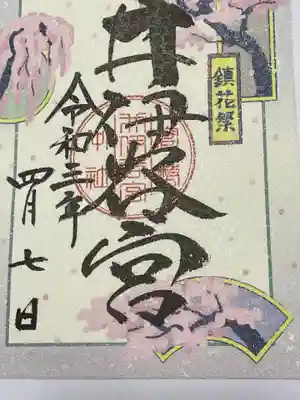 鎮花祭
井伊谷宮
令和三年
四月七日